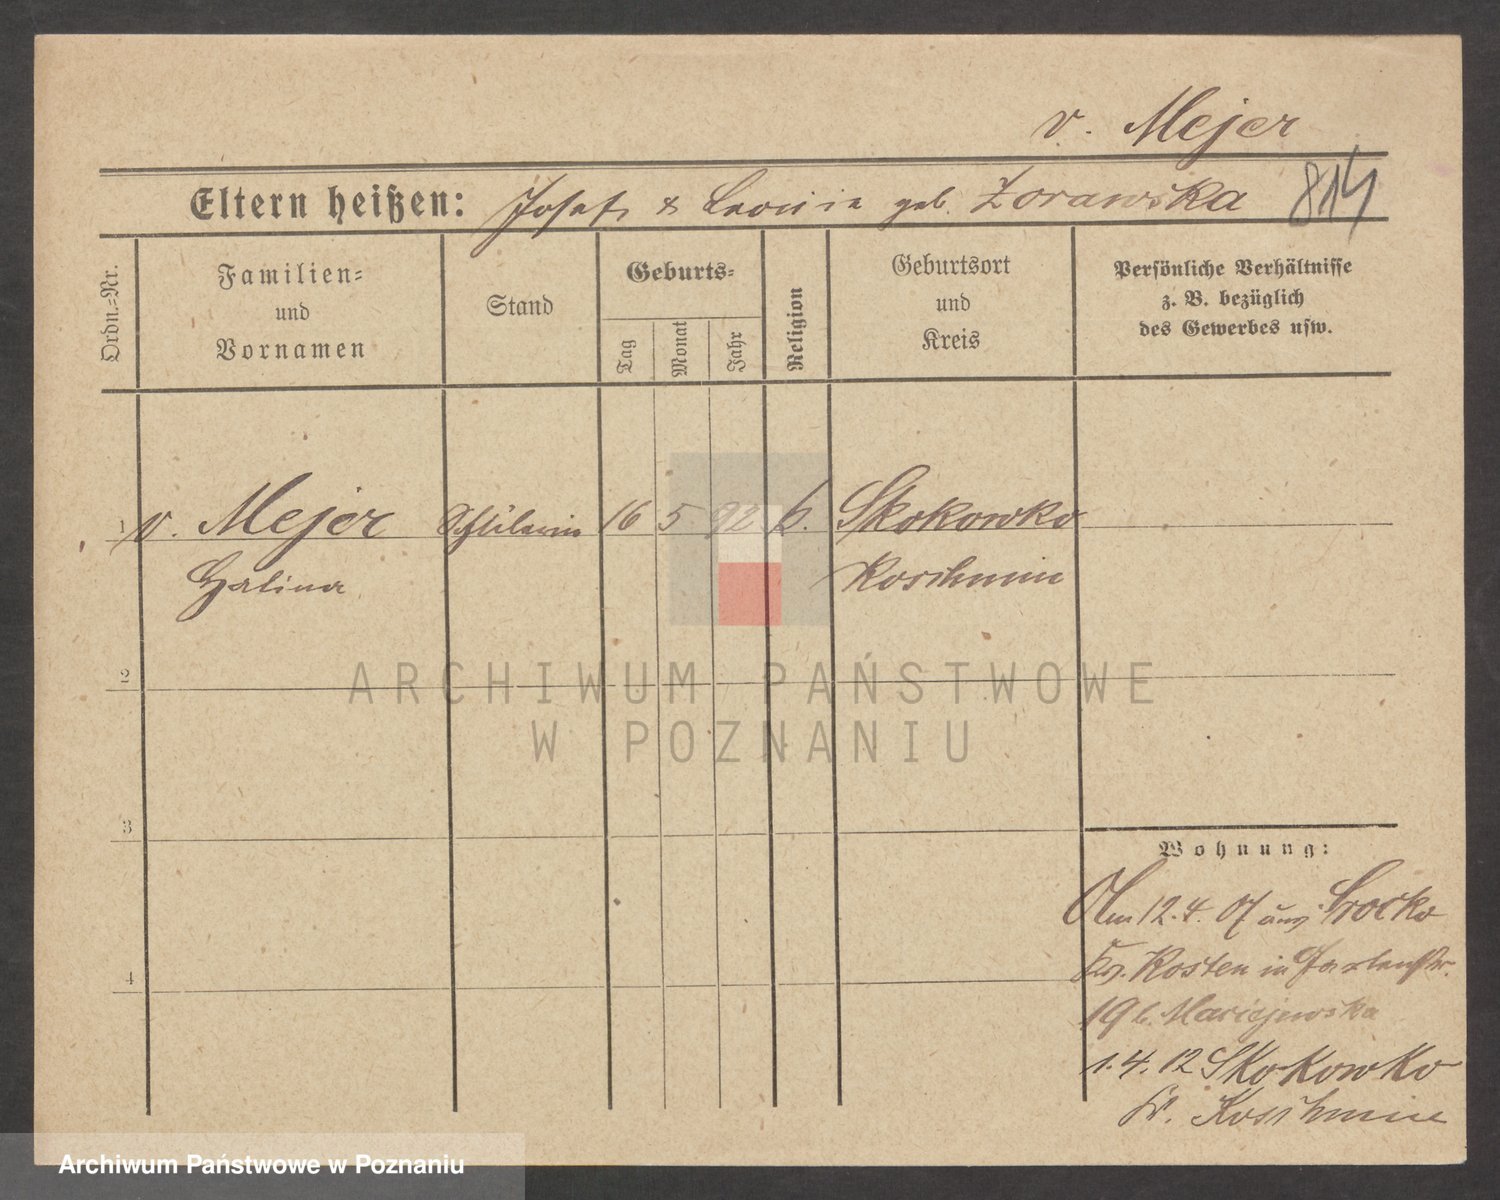 v. Mejer
Eltern heißen: Josef & Leonie geb. Zorawska 814
Ordn.=Nr.
Familien=
und
Vornamen
Stand
Geburts=
Tag
Monat
Jahr
Religion
Geburtsort
und
Kreis
Persönliche Verhältnisse
z. B. bezüglich
des Gewerbes usw.
1 v. Mejer Schülerin 16 5 92 k. Skokowko
Halina Koschmin
2
ARCHIWUM PAŃSTWOWE
W POZNANIU
3
Wohnung:
Am 12.4.07 Srocko
4
Kosten in
19 b. Maciejewska
1.4.12 Skokowko
Kr. Koschmin
Archiwum Państwowe w Poznaniu